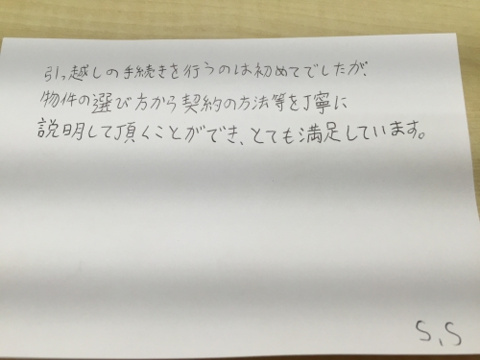 引っ越しの手続きを行うのは初めてでしたが、
物件の選び方から契約の方法等を丁寧に
説明して頂くことができ、とても満足しています。
S、S